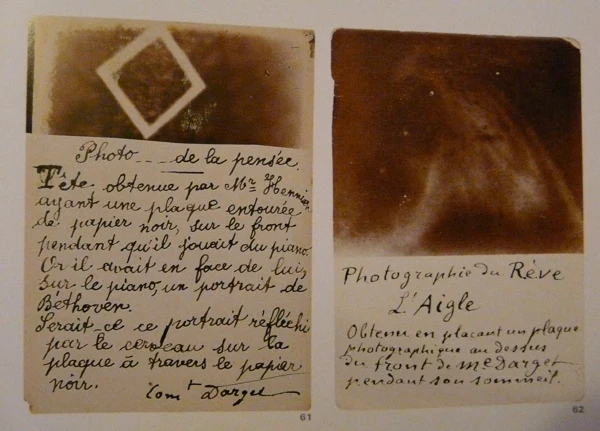 Photo____de la pensée.
Tête obtenue par Mr. Hennier
ayant une plaque entourée
de papier noir, sur le front
pendant qu'il jouait du piano.
Or il avait en face de lui,
sur le piano, un portrait de
Béthoven.
Serait-ce ce portrait réfléchi
par le cerveau sur la
plaque à travers le papier
noir.
Comt Darget
61
Photographie du Rêve
L'Aigle
Obtenue en placant un plaque
photographique au dessus
du front de Me Darget
pendant son sommeil.
62